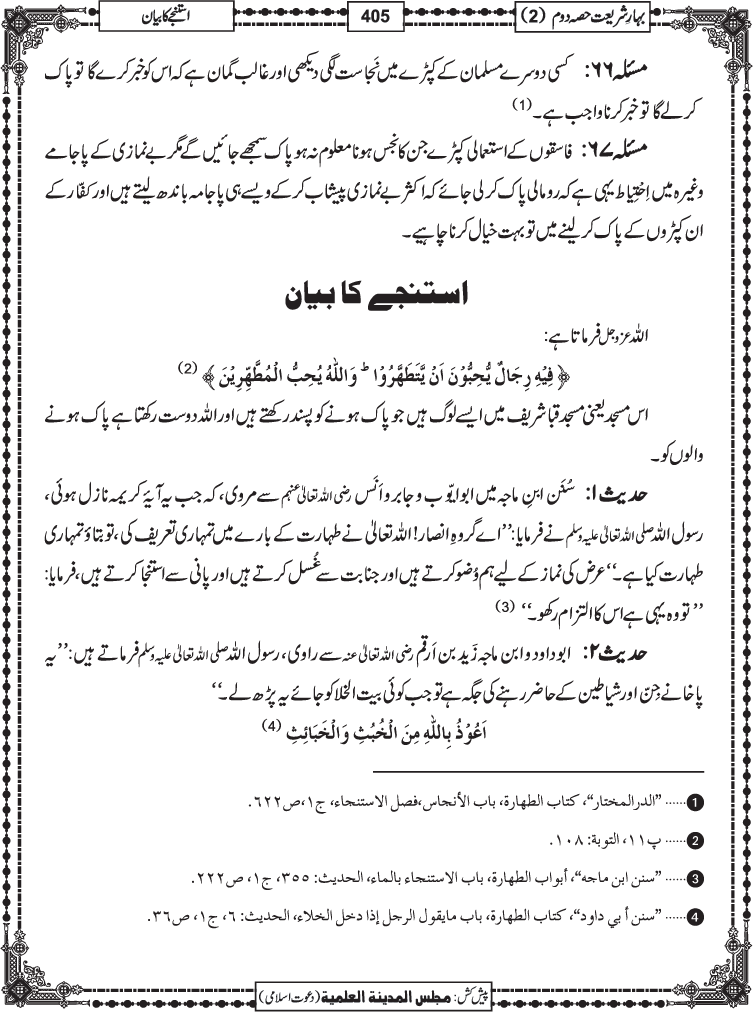 بہارِ شریعت حصہ دوم (2)
405
استنجے کا بیان
مسئلہ ۶۶: کسی دوسرے مسلمان کے کپڑے میں نَجاست لگی دیکھی اور غالب گمان ہے کہ اس کو خبر کرے گا تو پاک
کر لے گا تو خبر کرنا واجب ہے۔ (1)
مسئلہ ۶۷: فاسقوں کے استعمالی کپڑے جن کا نجس ہونا معلوم نہ ہو پاک سمجھے جائیں گے مگر بے نمازی کے پاجامے
وغیرہ میں اِحْتِیاط یہی ہے کہ رومالی پاک کر لی جائے کہ اکثر بے نمازی پیشاب کر کے ویسے ہی پاجامہ باندھ لیتے ہیں اور کفّار کے
ان کپڑوں کے پاک کر لینے میں تو بہت خیال کرنا چاہیے۔
استنجے کا بیان
اللہ عزوجل فرماتا ہے:
﴿ فِیْهِ رِجَالٌ یُّحِبُّوْنَ اَنْ یَّتَطَهَّرُوْا ؕ وَاللّٰهُ یُحِبُّ الْمُطَّهِّرِیْنَ ﴾ (2)
اس مسجد یعنی مسجد قبا شریف میں ایسے لوگ ہیں جو پاک ہونے کو پسند رکھتے ہیں اور اللہ دوست رکھتا ہے پاک ہونے
والوں کو۔
حدیث ۱: سُنَن ابنِ ماجہ میں ابو ایّوب و جابر و اَنَس رضی اللہ تعالیٰ عنہم سے مروی، کہ جب یہ آیۂ کریمہ نازل ہوئی،
رسول اللہ صلی اللہ تعالیٰ علیہ وسلم نے فرمایا: ’’اے گروہِ انصار! اللہ تعالیٰ نے طہارت کے بارے میں تمہاری تعریف کی، تو بتاؤ تمہاری
طہارت کیا ہے۔‘‘ عرض کی نماز کے لیے ہم وُضو کرتے ہیں اور جنابت سے غُسل کرتے ہیں اور پانی سے استنجا کرتے ہیں، فرمایا:
’’تو وہ یہی ہے اس کا التزام رکھو۔‘‘ (3)
حدیث ۲: ابو داود و ابن ماجہ زَید بن اَرقم رضی اللہ تعالیٰ عنہ سے راوی، رسول اللہ صلی اللہ تعالیٰ علیہ وسلم فرماتے ہیں: ’’یہ
پاخانے جِنّ اور شیاطین کے حاضر رہنے کی جگہ ہے تو جب کوئی بیت الخلا کو جائے یہ پڑھ لے۔‘‘
اَعُوْذُ بِاللّٰهِ مِنَ الْخُبُثِ وَالْخَبَائِثِ (4)
1 ...... ”الدرالمختار“، کتاب الطهارة، باب الأنجاس، فصل الاستنجاء، ج۱، ص۶۲۲.
2 ...... پ۱۱، التوبة: ۱۰۸.
3 ...... ”سنن ابن ماجه“، أبواب الطهارة، باب الاستنجاء بالماء، الحديث: ۳۵۵، ج۱، ص۲۲۲.
4 ...... ”سنن أبي داود“، کتاب الطهارة، باب مايقول الرجل إذا دخل الخلاء، الحديث: ۶، ج۱، ص۳۶.
پیش کش: مجلس المدینۃ العلمیۃ (دعوت اسلامی)